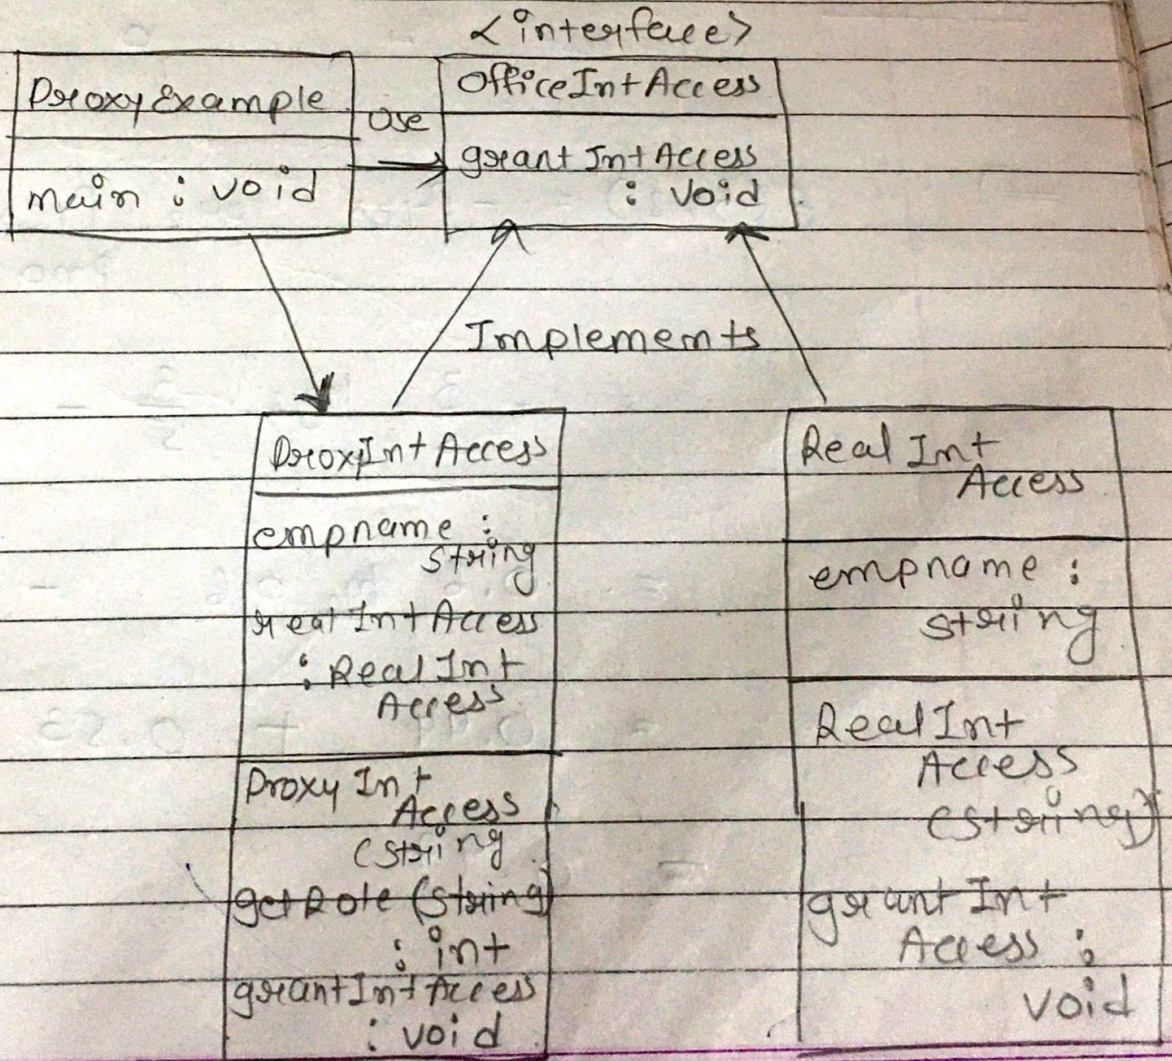 <interface>
ProxyExample
main : void
use
OfficeIntAccess
grantIntAccess
: void
Implements
ProxyIntAccess
empname :
string
realIntAccess
: RealInt
Access
ProxyInt
Access
(string
getRole (string)
: int
grantIntAccess
: void
RealInt
Access
empname :
string
RealInt
Access
(string)
grantInt
Access :
void